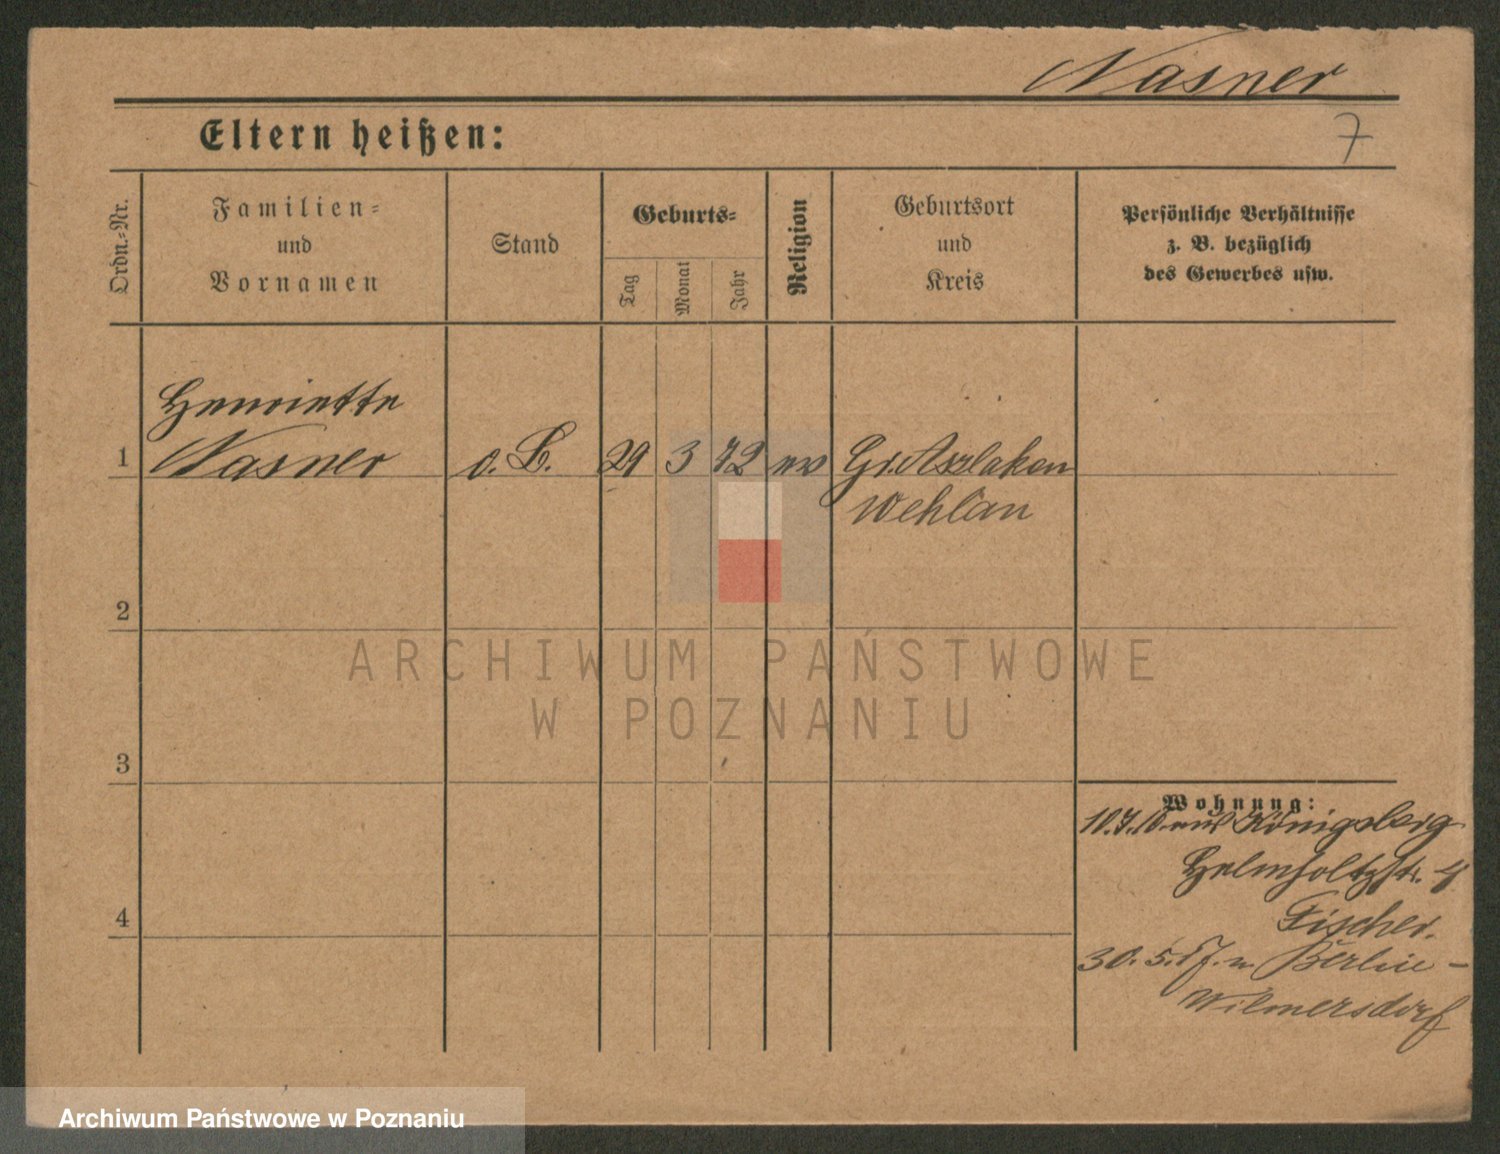 Nasner
7
Eltern heißen:
Ordn.-Nr.
Familien-
und
Vornamen
Stand
Geburts-
Tag
Monat
Jahr
Religion
Geburtsort
und
Kreis
Persönliche Verhältnisse
z. B. bezüglich
des Gewerbes usw.
Henriette
1 Nasner o. B. 29 3 72 ev Gr. Aszlaken
Wehlau
2
3
4
Wohnung:
10.7.10. aus Königsberg
Helmholtzstr. 4
Fischer.
30. 5. 17. n. Berlin-
Wilmersdorf
ARCHIWUM PAŃSTWOWE
W POZNANIU
Archiwum Państwowe w Poznaniu